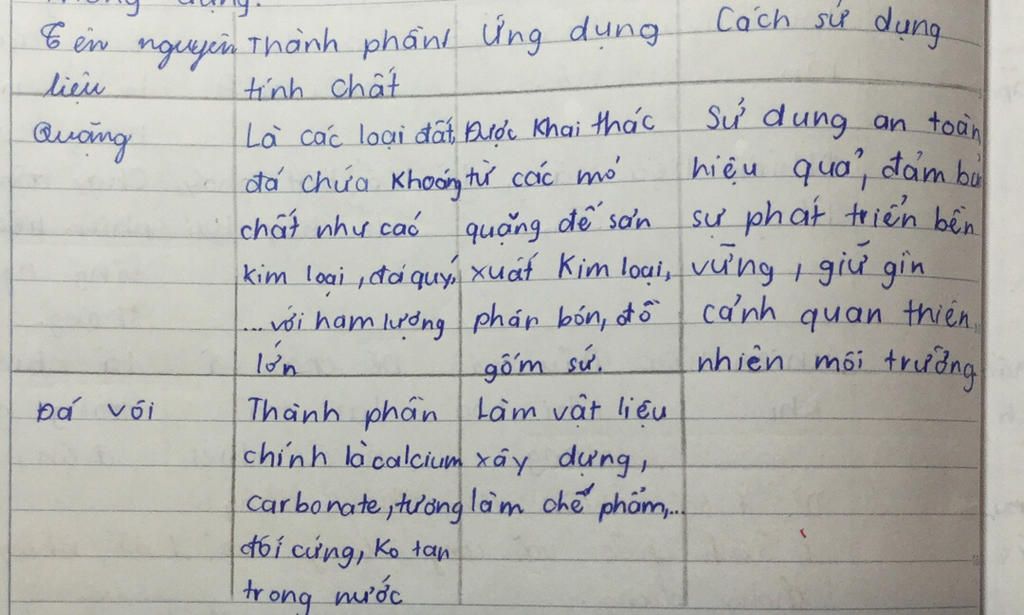 Tên nguyên liệu
Thành phần/ tính chất
Ứng dụng
Cách sử dụng
Quặng
Là các loại đất,
đá chứa khoáng
chất như các
kim loại, đá quý,
...với hàm lượng
lớn
Được khai thác
từ các mỏ
quặng để sản
xuất kim loại,
phân bón, đồ
gốm sứ.
Sử dụng an toàn
hiệu quả, đảm bả
sự phát triển bền
vững, giữ gìn
cảnh quan thiên
nhiên môi trường
Đá vôi
Thành phần
chính là calcium
carbonate, tương
đối cứng, ko tan
trong nước
Làm vật liệu
xây dựng,
làm chế phẩm,...